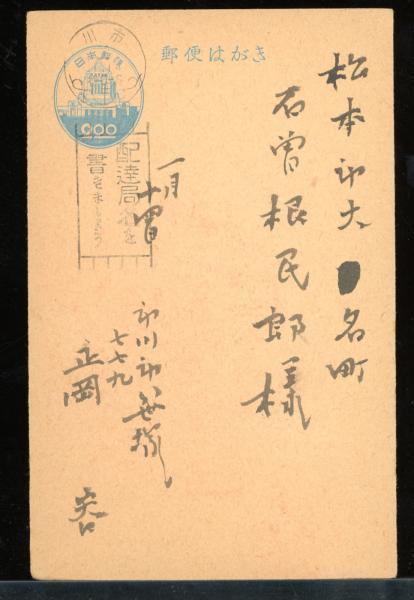 郵便はがき
川市
日本郵便
2.00
配達局名を
書きましょう
松本市大名町
石曽根民郎様
一月
十四日
市川市菅野
七七九
正岡 容